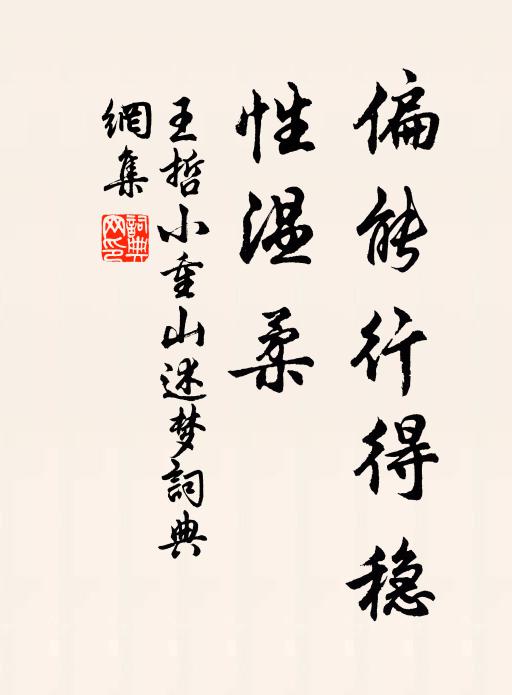 偏能行得稳
性温柔
王哲小重山述梦詞典
網集
詞典网印